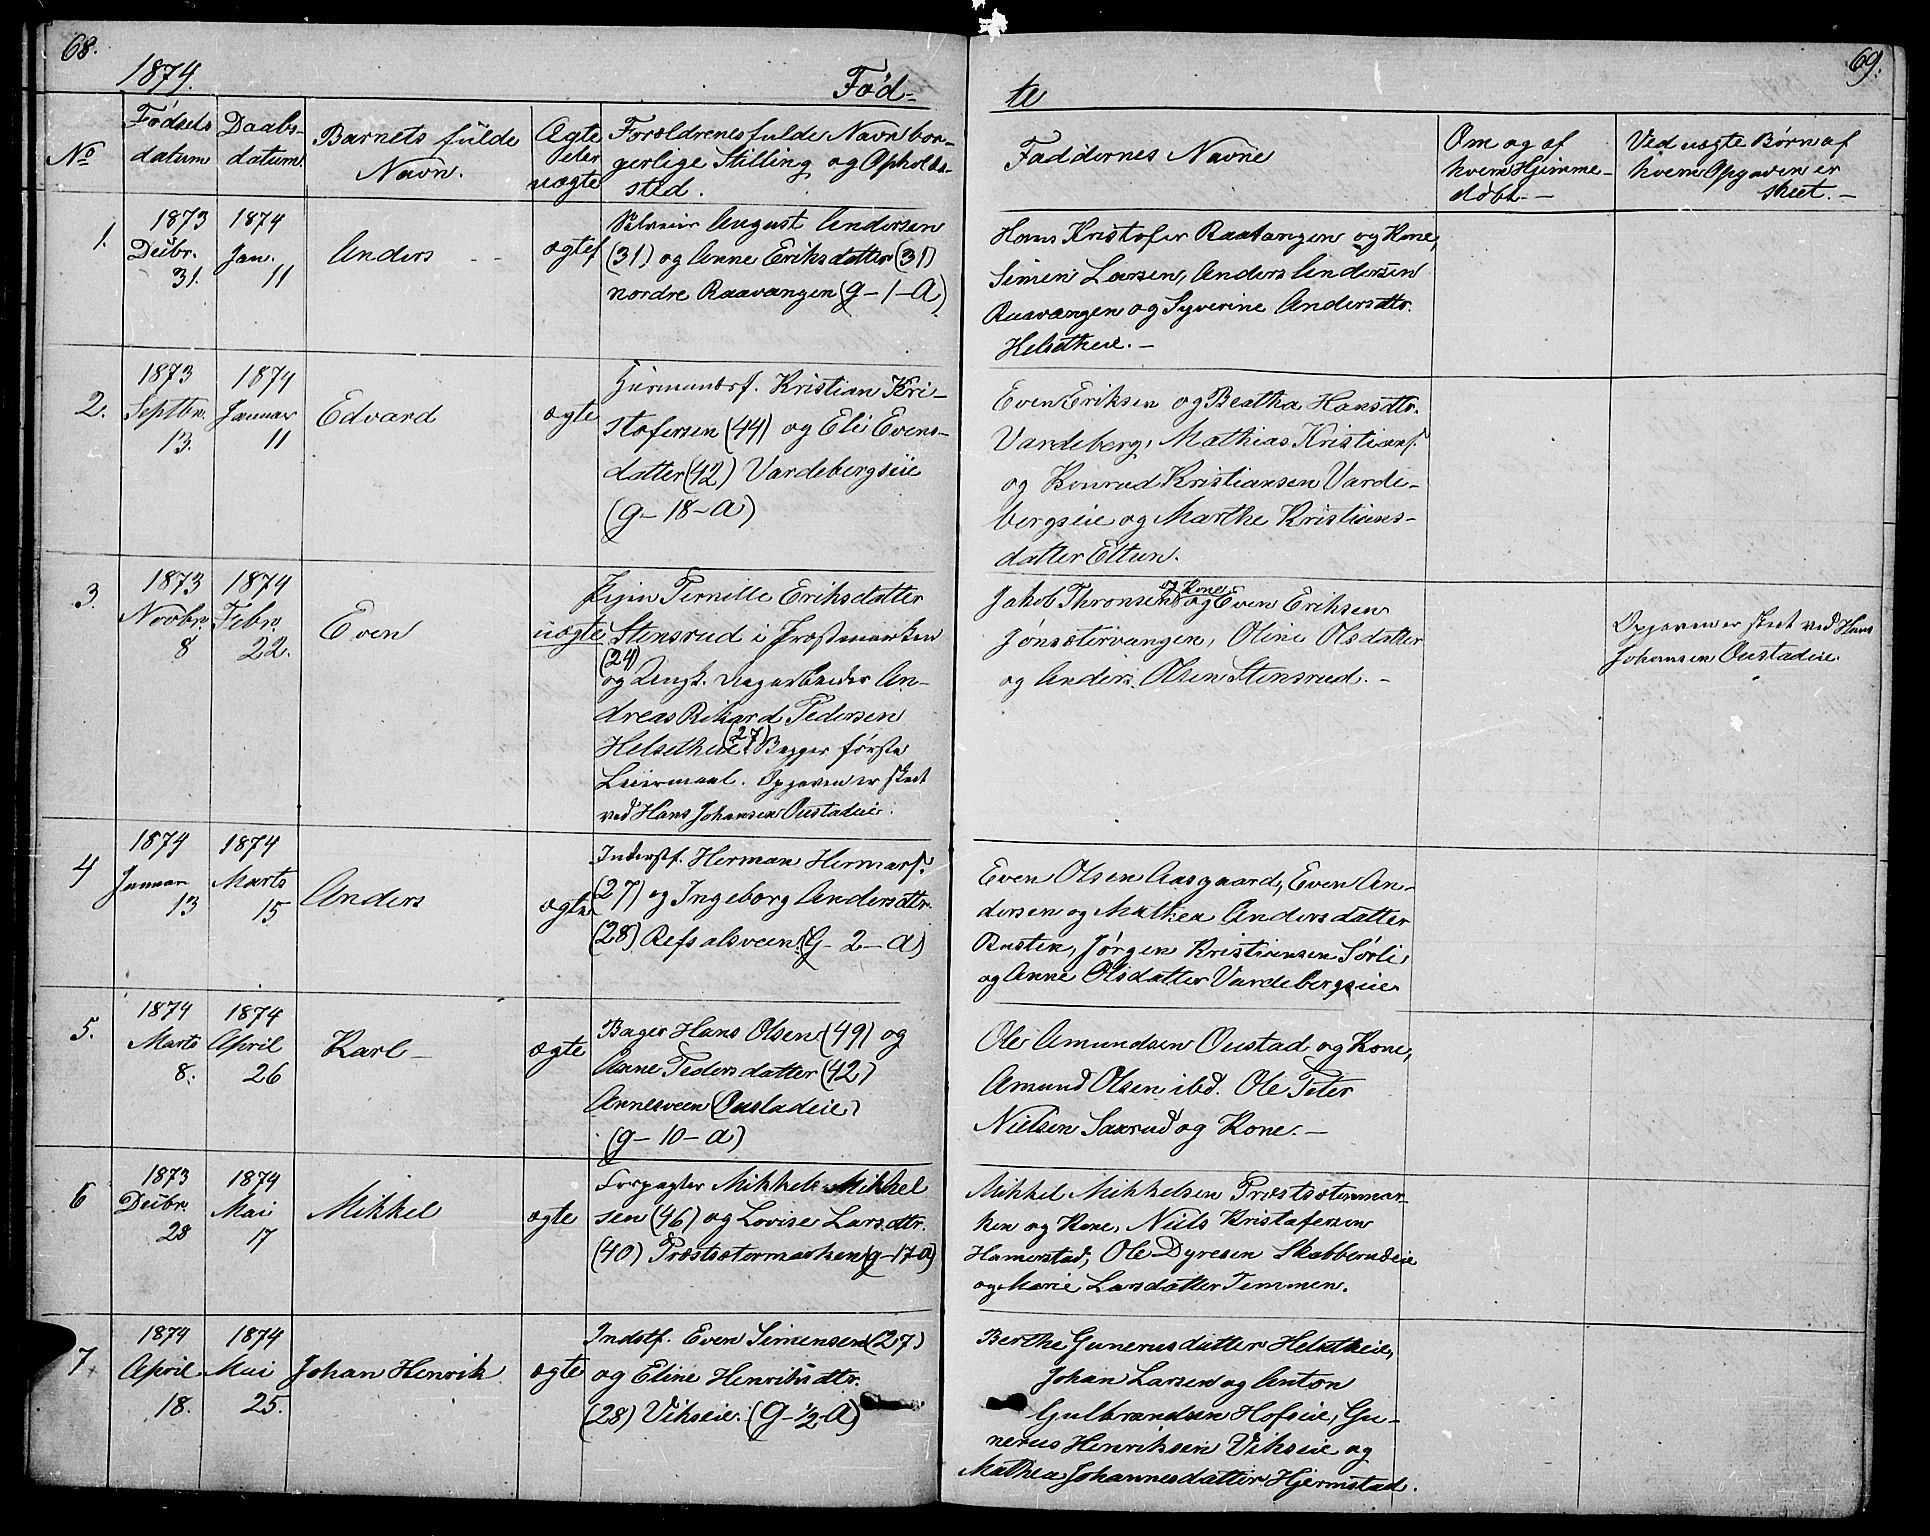 68.
1874.
Fød-
No
Fødsels
datum
Daabs-
datum.
Barnets fulde
Navn.
Ægte
eler
uægte
Forældrenes fulde Navn bor-
gerlige Stilling og Opholds-
sted.
1.
1873
Decbr.
31.
1874
Jan.
11
Anders
ægtef
August Andersen
(31) og Anne Eriksdatter (31)
nordre Raavangen (g-1-a)
2.
1873
Septbr.
13.
1874
Januar
11
Edvard
ægte
Huusmandsf. Kristian Kri-
stofersen (44) og Eli Evens-
datter (42) Vardebergseie
(g-18-a)
3.
1873
Novbr.
8
1874
Febr.
22.
Even
uægte
Pigen Pernille Eriksdatter
Stensrud i Præstmarken
(24)
og Ungk. Dagarbeider An-
dreas Rikard Pedersen
Helsetheie (27). Begges første
Leiermaal. Opgaven er skeet
ved Hans Johansen Oustadeie.
4
1874
Januar
13
1874
Marts
15
Anders
ægte
Inderstf. Herman Hermans.
(27) og Ingeborg Andersdtr.
(28) Refsalsveen (G-2-a)
5.
1874
Marts
8.
1874
April
26
Karl
ægte
Bager Hans Olsen (49) og
Anne Pedersdatter (42)
Annesveen (Oustadeie)
(g-10-a)
6
1873
Decbr.
28
1874
Mai
17
Mikkel
ægte
Forpagter Mikkel Mikkel
sen (46) og Lovise Larsdtr.
(40) Præstsætermarken (g-17-a)
7.
1874
April
18.
1874
Mai
25.
Johan Henrik
ægte
Indstf. Even Simensen (27)
og Eline Henriksdtr.
(28) Vikseie. (G-½-a)
69.
te
Faddernes Navne
Om og af
hvem Hjemme-
døbt.-
Ved uægte Børn af
hvem Opgaven er
skeet.-
Hans Kristofer Raavangen og Kone,
Simen Larsen, Anders Andersen
Raavangen og Syverine Andersdtr.
Helsetheie.-
Even Eriksen og Beatha Hansdtr.
Vardeberg, Mathias Kristians.
og Konrad Kristiansen Varde-
bergseie og Marthe Kristians-
datter Eltun.
Jakob Thronsen og Kone og Even Eriksen
Jønsætervangen, Oline Olsdatter
og Anders Olsen Stensrud.-
Opgaven er skeet ved Hans
Johansen Oustadeie.
Even Olsen Aasgaard, Even An-
dersen og Mathea Andersdatter
Busten, Jørgen Kristiansen Sørli
og Anne Olsdatter Vardebergseie
Ole Amundsen Oustad og Kone,
Amund Olsen ibd. Ole Peter
Nielsen Saxrud og Kone.-
Mikkel Mikkelsen Præstsætermar-
ken og Kone, Niels Kristofersen
Hamerstad, Ole Dyresen Skabberudeie
og Marie Larsdatter Temmen.
Berthe Gunerusdatter Helsetheie,
Johan Larsen og Anton
Gulbrandsen Hofseie, Gu-
nerus Henriksen Vikseie og
Mathea Johannesdatter Hjermstad.